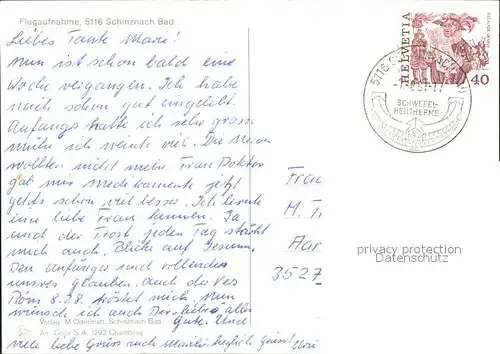 Flugaufnahme, 5116 Schinznach Bad
Liebes Tante Marie!
Nun ist schon bald eine
Woche vergangen. Ich habe
mich schon gut eingelebt.
Anfangs hatte ich sehr grosse
Mühe ich weinte viel. Die Nerven
wollten nicht mehr Frau Doktor
gab mir Medikamente jetzt
gehts schon viel besser. Ich lernte
eine liebe Frau kennen. Ja
und der Trost jeden Tag stärkt
mich auch. Blicke auf Jesum,
den Anfänger und Vollender
unseres glauben. auch der Vers
Röm 8.28. tröstet mich. Nun
wünsch ich auch Dir liebes alles
Gute. Und
viele liebe Grüss auch
Verlag M Odermatt, Schinznach Bad
S.A. 1292 Chambésy
HELVETIA
40
5116
SCHWEFEL-
HEILTHERME
Frau
M. T
Aar
3527
privacy protection
Datenschutz